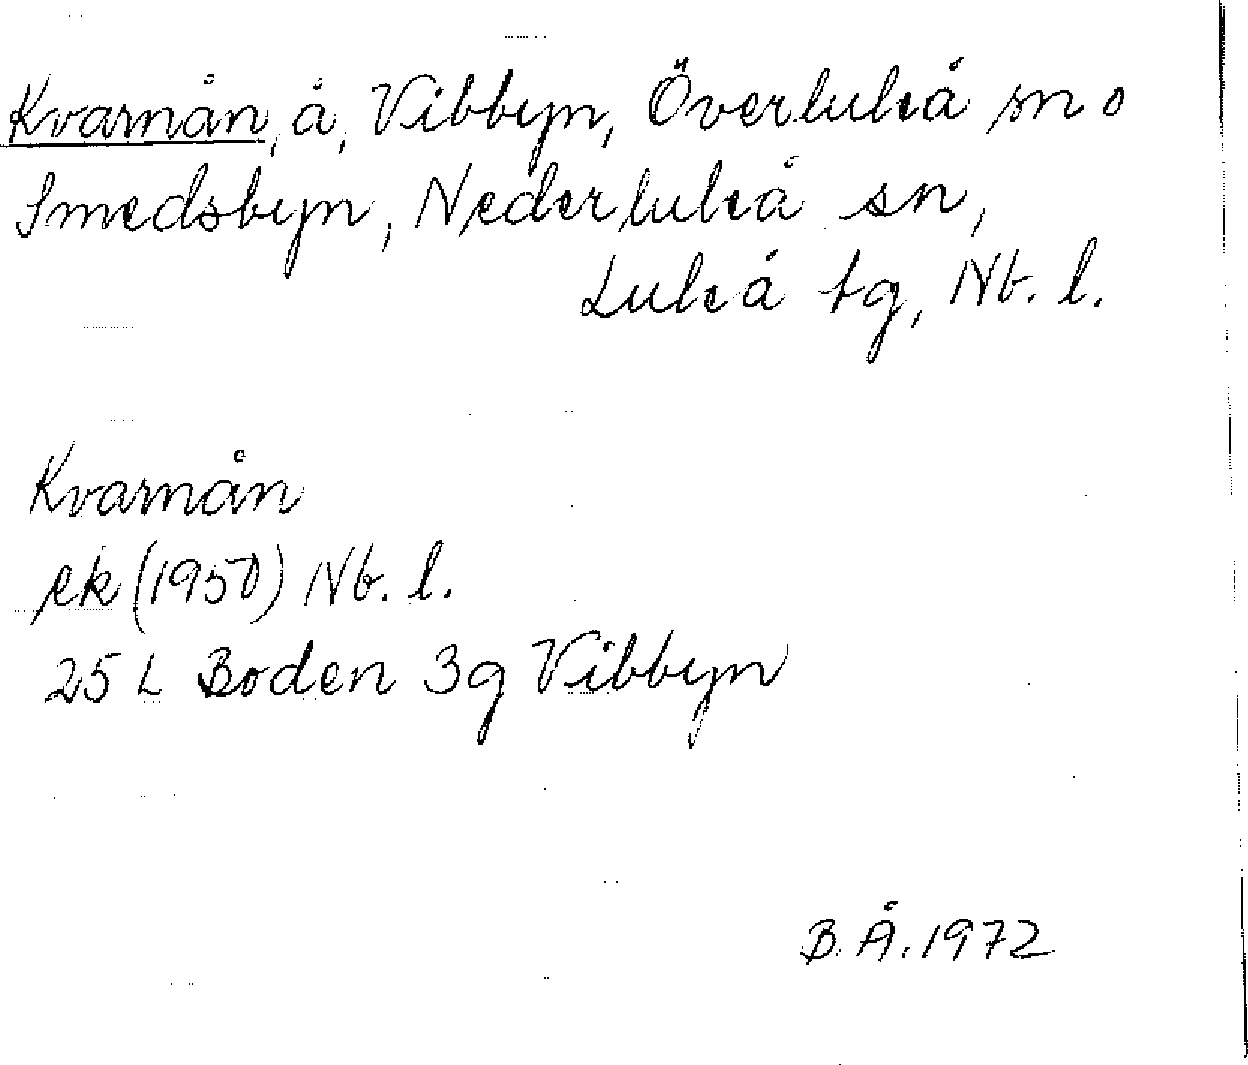 Kvarnån, å, Vibbyn, Överluleå sn o
Smedsbyn, Nederluleå sn,
Luleå tg, Nb. l.
Kvarnån
ek (1950) Nb. l.
25 L Boden 3g Vibbyn
B.Å. 1972